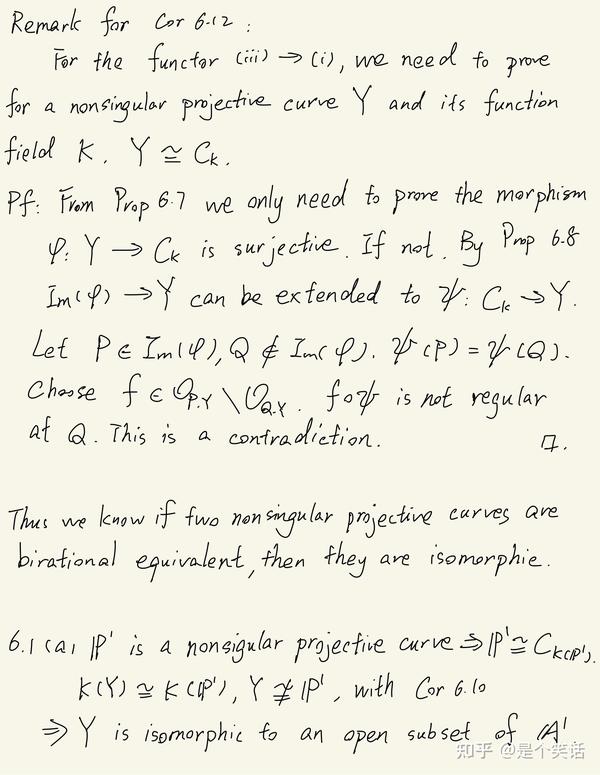 Remark for Cor 6.12 :
For the functor (iii) → (i), we need to prove
for a nonsingular projective curve Y and its function
field K. Y ≅ C_K.
Pf: From Prop 6.7 we only need to prove the morphism
φ: Y → C_K is surjective. If not. By Prop 6.8
Im(φ) → Y can be extended to ψ: C_K → Y.
Let P ∈ Im(φ), Q ∉ Im(φ). ψ(P) = ψ(Q).
Choose f ∈ O_{P,Y} \ O_{Q,Y}. f∘ψ is not regular
at Q. This is a contradiction. □.
Thus we know if two nonsingular projective curves are
birational equivalent, then they are isomorphic.
6.1 (a) ℙ¹ is a nonsigular projective curve ⇒ ℙ¹ ≅ C_{K(ℙ¹)}.
K(Y) ≅ K(ℙ¹), Y ≇ ℙ¹, with Cor 6.10
⇒ Y is isomorphic to an open subset of 𝔸¹
知乎 @是个笑话